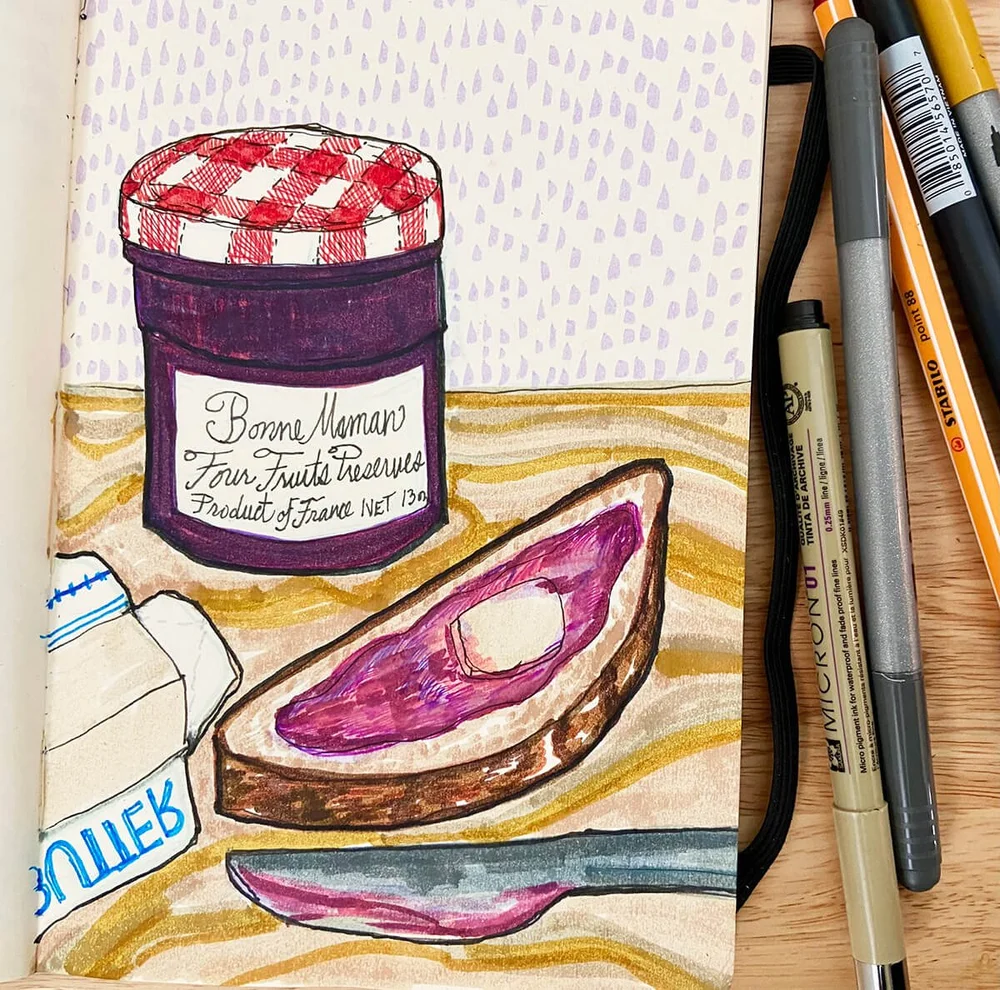 Bonne Maman
Four Fruits Preserves
Product of France NET 13oz
BUTTER
STABILO
point 88
MICRON 01
Micro pigment ink for waterproof and fade proof fine lines
TINTA DE ARCHIVE
0.25mm line / ligne / linea
XSDK01#49
AP
0 85014 56570 7